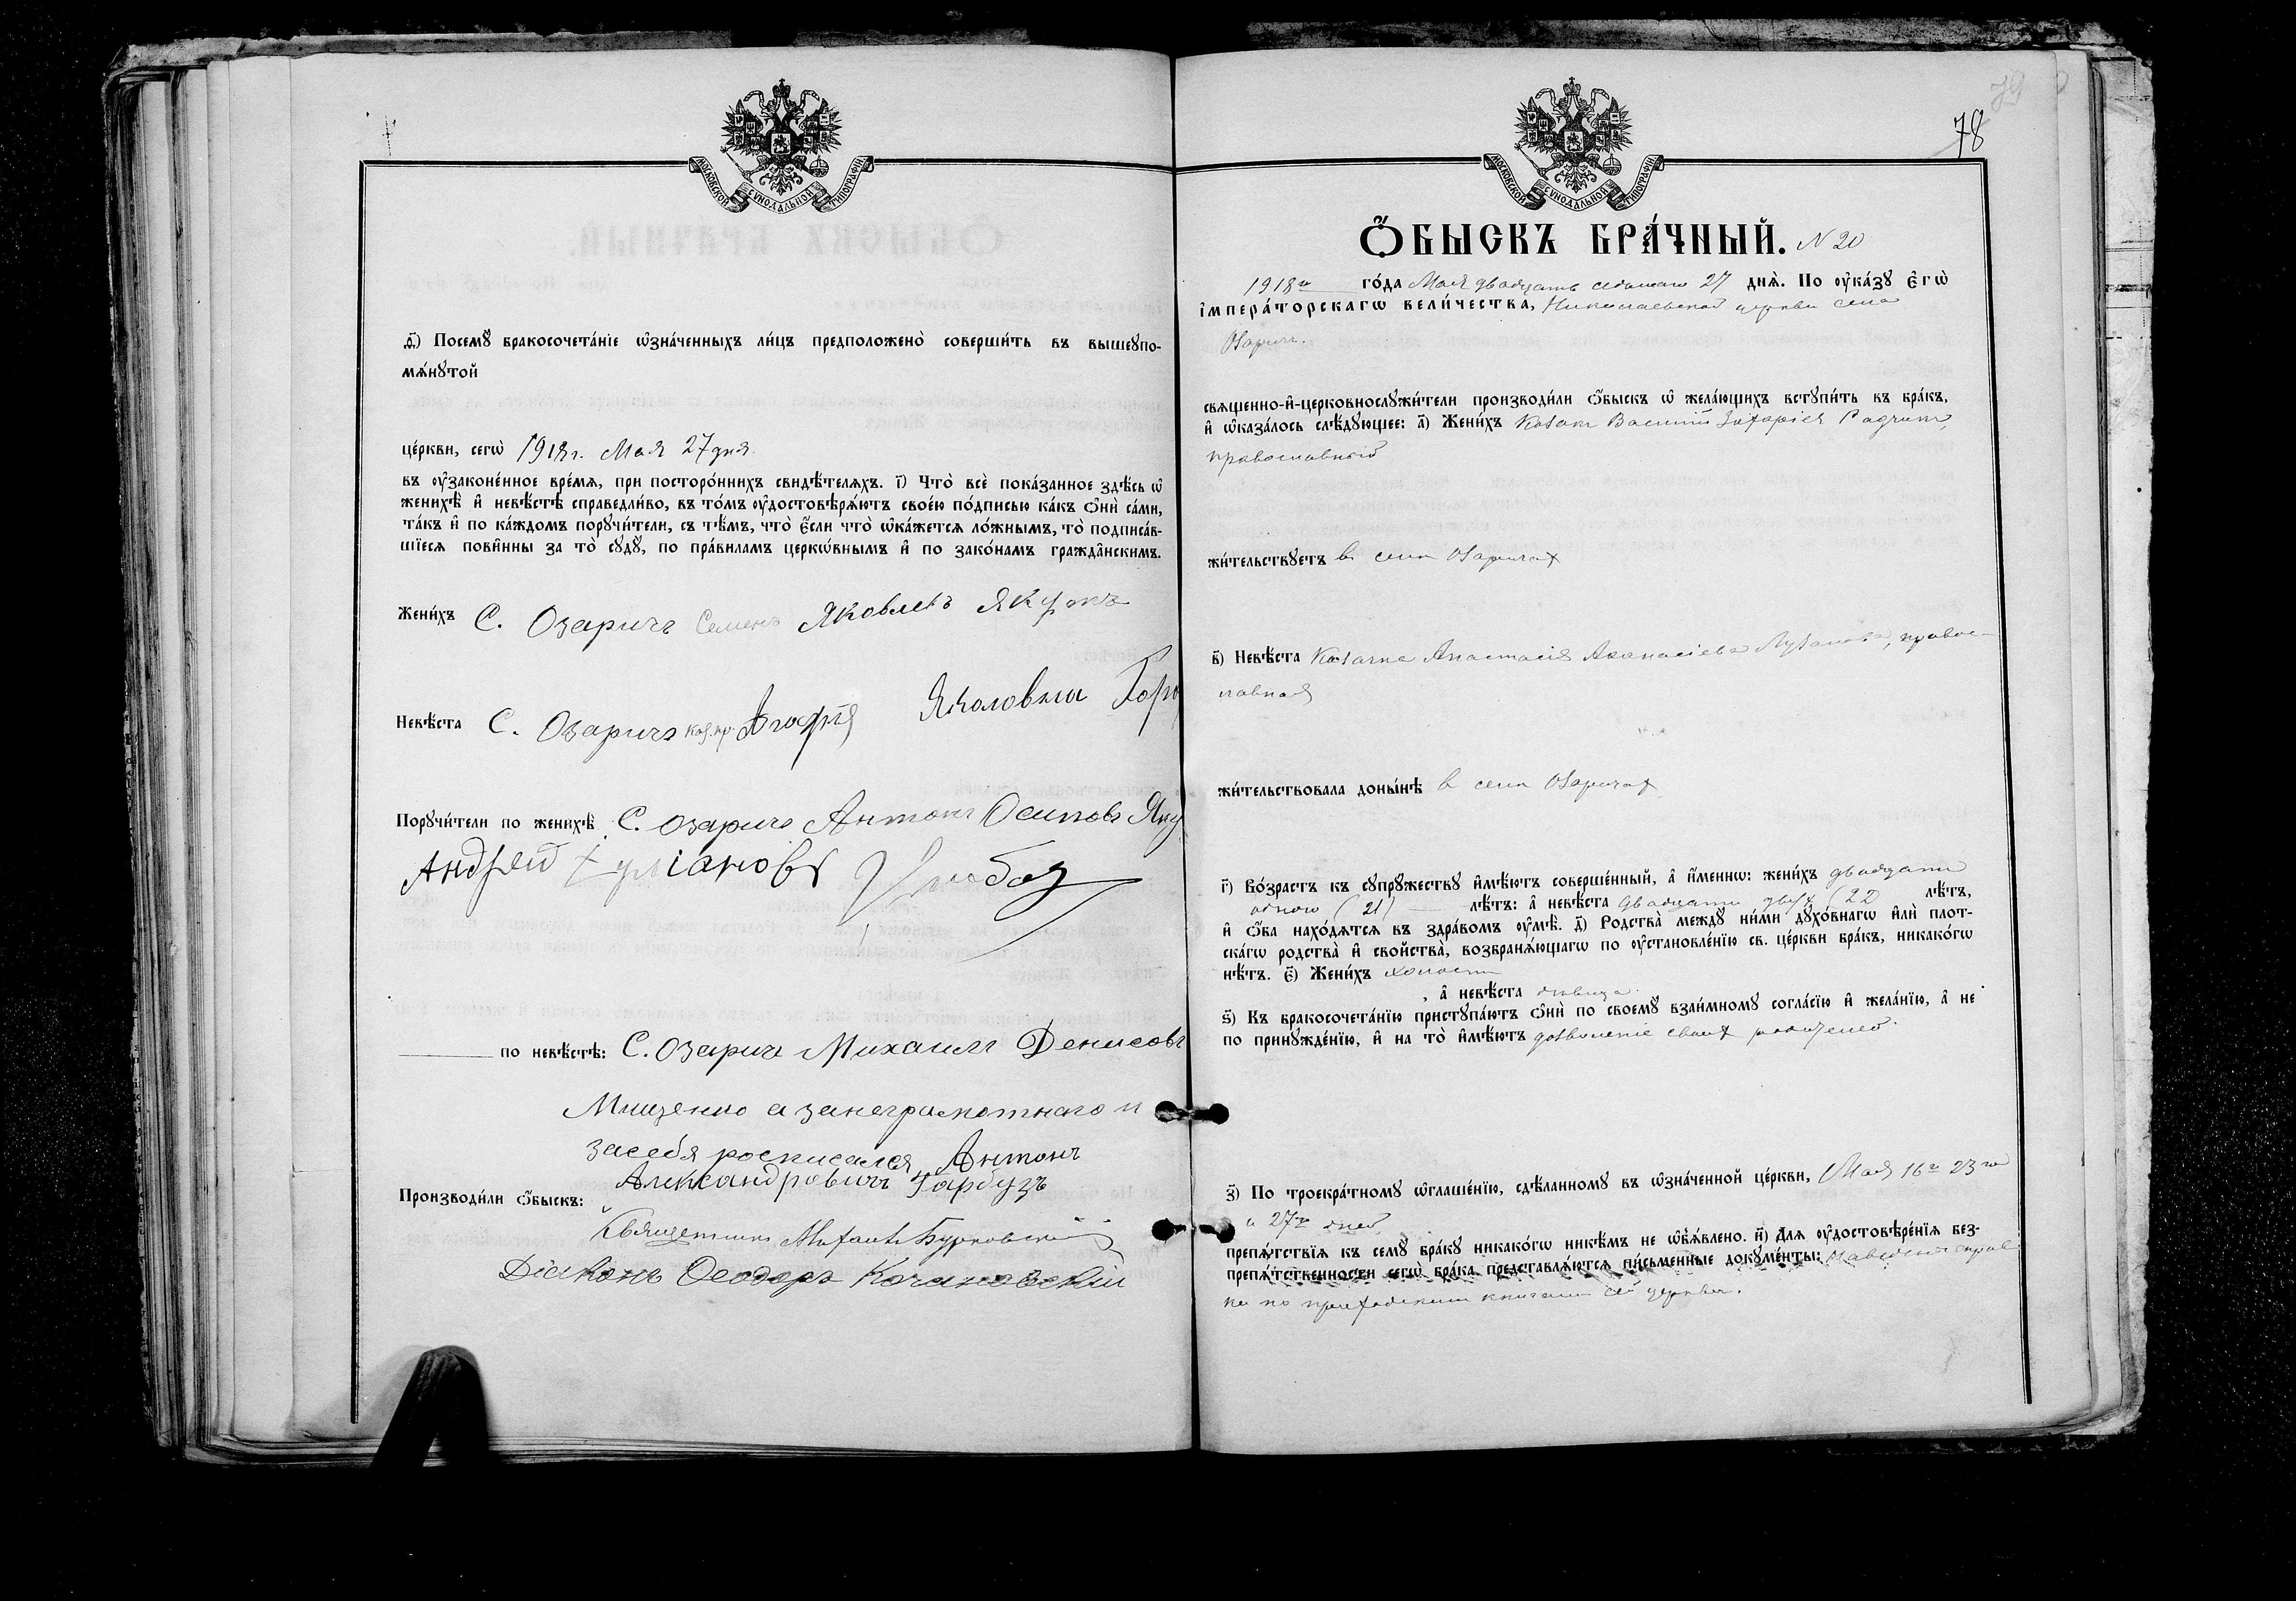 МОСКОВСКОЙ СѴНОДАЛЬНОЙ ТИПОГРАФІИ
ѳ҃) Посемꙋ бракосочета́нїе ѡ҆зна́ченныхъ ли́цъ предположено̀ соверши́ть въ вышеꙋпо-
мѧ́нꙋтой
це́ркви, сегѡ̀ 1918 г. Мая 27 дня
въ ᲂу҆законе́нное вре́мѧ, при посторо́ннихъ свидѣ́телѧхъ. і҃) Что̀ всѐ пока́занное здѣ́сь ѡ҆
женихѣ̀ и҆ невѣ́стѣ справедли́во, въ то́мъ ᲂу҆достовѣрѧ́ютъ свое́ю по́дписью ка́къ ѻ҆нѝ са́ми,
та́къ и҆ по ка́ждомъ порꙋчи́тели, съ тѣ́мъ, что̀ є҆́сли что̀ ѡ҆ка́жетсѧ ло́жнымъ, то̀ подписа́в-
шїесѧ пови́нны за то̀ сꙋдꙋ̀, по пра́виламъ церкѡ́внымъ и҆ по зако́намъ гражда̂нскимъ.
Жени́хъ С. Озаричъ Семенъ Яковлевъ
Невѣ́ста С. Озаричъ каз. Агафія Яколовна
Порꙋчи́тели по женихѣ̀ С. Озаричъ Антонъ Осиповъ Яку
Андрей
по невѣ́стѣ: С. Озаричъ Михаилъ Денисовъ
Мищенко а занеграмотнаго и
засебя росписался Антонъ
Александровичъ Гарбузъ
Производи́ли ѻ҆́быскъ:
Священникъ Бурковскій
Діаконъ Ѳеодоръ Кочановскій
78
МОСКОВСКОЙ СѴНОДАЛЬНОЙ ТИПОГРАФІИ
Ѻ҆́БЫСКЪ БРА́ЧНЫЙ. N 20
1918го го́да Мая двадцать седьмаго 27 днѧ̀. По ᲂу҆ка́зꙋ є҆гѡ̀
і҆мпера́торскагѡ вели́чества, Николаевской церкви села
Озаричъ.
свѧщенно-и҆-церковнослꙋжи́тели производи́ли ѻ҆́быскъ ѡ҆ жела́ющихъ встꙋпи́ть въ бра́къ,
и҆ ѡ҆каза́лось слѣ́дꙋющее: а҃) Жени́хъ Козакъ Василій Захаріев
православный
жи́тельствꙋетъ в селѣ Озаричах
в҃) Невѣ́ста Козачка Анастасія Аѳанасіева, правос-
лавная
жи́тельствовала доны́нѣ в селѣ Озаричах
г҃) Во́зрастъ къ сꙋпрꙋ́жествꙋ и҆мѣ́ютъ соверше́нный, а҆ и҆́меннѡ: жени́хъ двадцати
одного (21) лѣ́тъ: а҆ невѣ́ста двадцати двух (22 лѣ́тъ,
и҆ ѻ҆́ба нахо́дѧтсѧ въ здра́вомъ ᲂу҆мѣ̀. д҃) Родства̀ междꙋ ни́ми дꙋхо́внагѡ и҆лѝ плот-
ска́гѡ родства̀ и҆ сво́йства̀, возбранѧ́ющагѡ по ᲂу҆становле́нїю св. це́ркви бра́къ, никако́гѡ
нѣ́тъ. є҃) Жени́хъ холостъ
, а҆ невѣ́ста дѣвица.
ѕ҃) Къ бракосочета́нїю пристꙋпа́ютъ ѻ҆нѝ по своемꙋ̀ взаи́мномꙋ согла́сїю и҆ жела́нїю, а҆ не
по принꙋжде́нїю, и҆ на то̀ и҆мѣ́ютъ дозволеніе своих родителей.
з҃) По троекра́тномꙋ ѡ҆глаше́нїю, сдѣ́ланномꙋ въ ѡ҆зна́ченной це́ркви, Мая 16го 23го
и 27го дней
препѧ́тствїѧ къ семꙋ̀ бра́кꙋ никако́гѡ никѣ́мъ не ѡ҆б̾ѧ́влено. и҃) Длѧ ᲂу҆достовѣре́нїѧ без-
препѧ́тственности сегѡ̀ бра́ка представлѧ́ютсѧ пи́сьменные докꙋме́нты: наведена справ
ка по приходским книгам сей церкви.